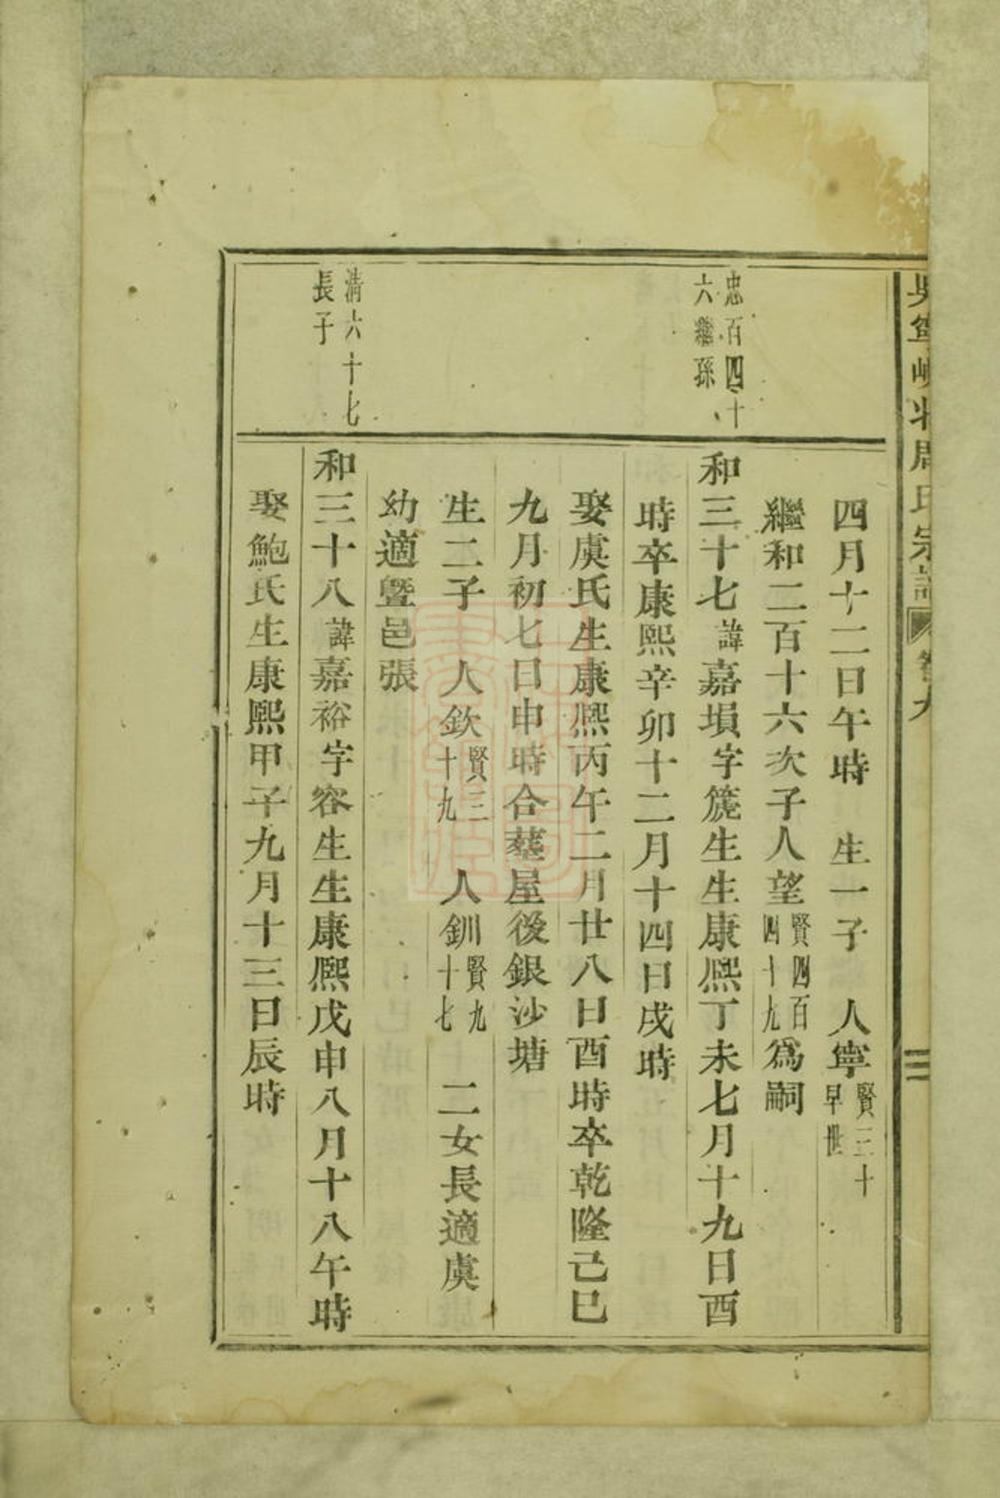 吳寧峴北周氏宗譜 卷九
四月十二日午時 生一子 人寧賢三十早世
繼和二百十六次子人望賢四百四十九為嗣
忠百四十六繼孫
和三十七諱嘉塤字篪生生康熙丁未七月十九日酉
時卒康熙辛卯十二月十四日戌時
娶虞氏生康熙丙午二月廿八日酉時卒乾隆己巳
九月初七日申時合墓屋後銀沙塘
生二子 人欽賢三十九 人釧賢九十七 二女長適虞
幼適曁邑張
淸六十七長子
和三十八諱嘉裕字容生生康熙戊申八月十八午時
娶鮑氏生康熙甲子九月十三日辰時